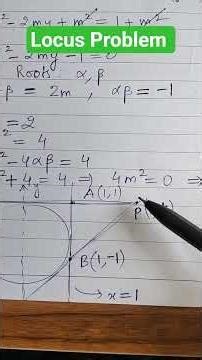 ² - 2my + m² = 1 + m²
Locus Problem
² - 2my - 1 = 0
Roots α, β
β = 2m , αβ = -1
= 2
² = 4
² - 4αβ = 4
² + 4 = 4 ⇒ 4m² = 0 ⇒
y
A(1,1)
P(
B(1,-1)
→ x = 1